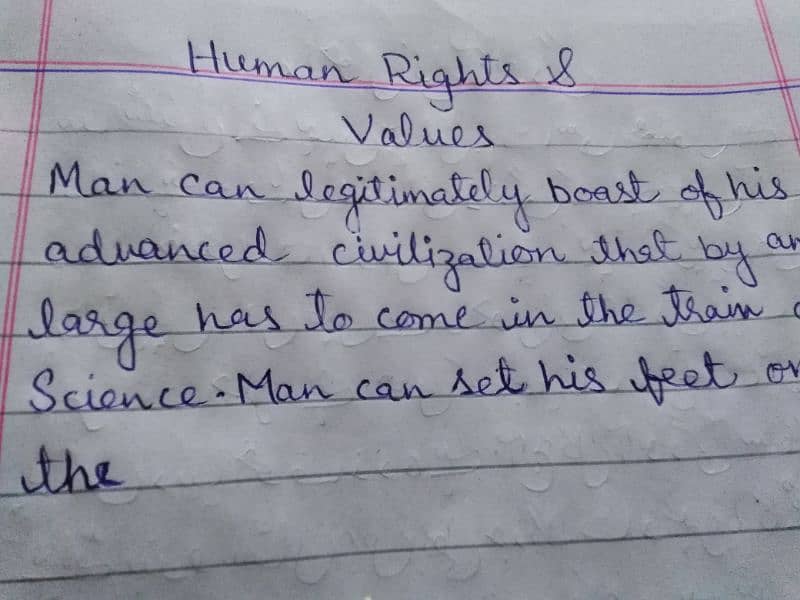 Human Rights &
Values
Man can legitimately boast of his
advanced civilization that by an
large has to come in the train
Science. Man can set his feet on
the